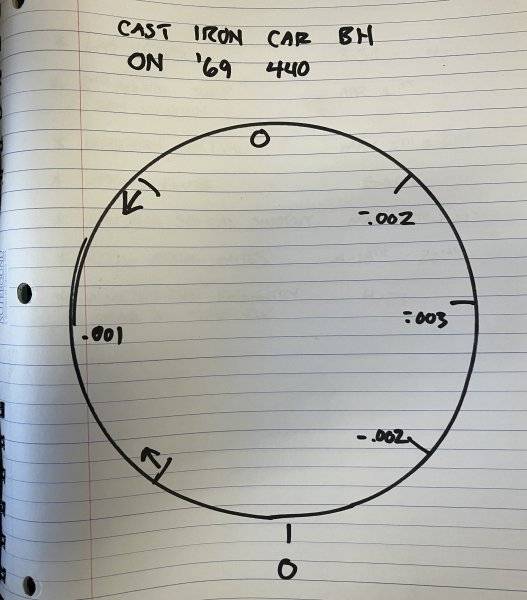 CAST IRON CAR BH
ON '69 440
0
-.002
-.003
.001
-.002
0